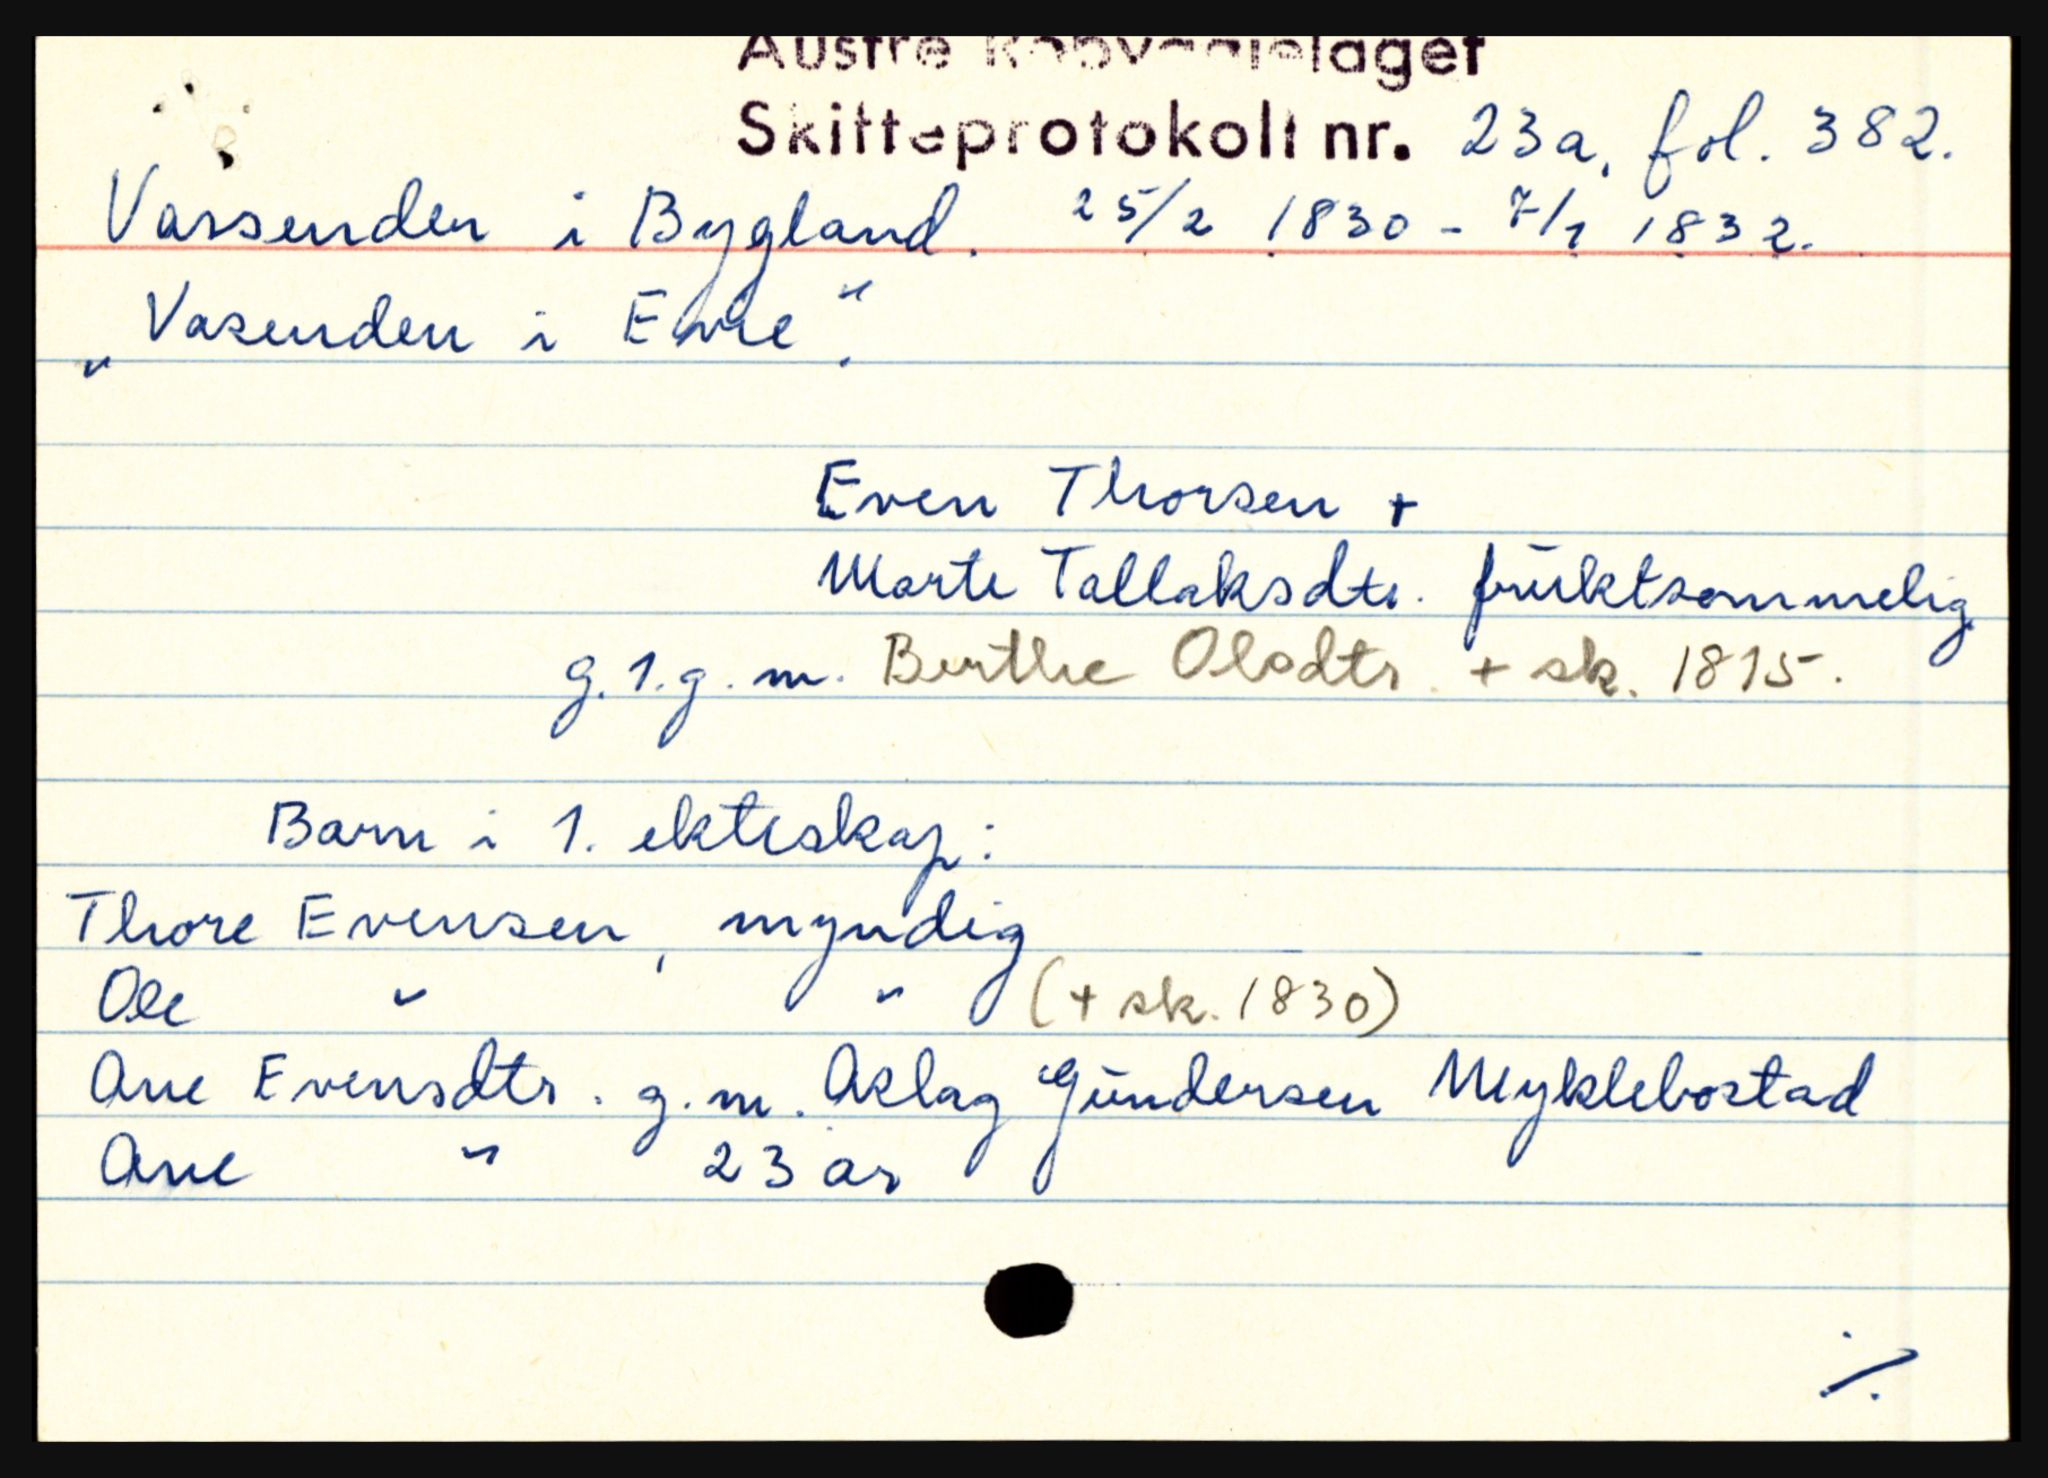 Austre Robyggjelaget
Skifteprotokoll nr. 23a, fol. 382.
Vassenden i Bygland. 25/2 1830 - 7/1 1832.
„Vasenden i Evie".
Even Thorsen +
Marte Tallaksdtr. fruktsommelig
g.1.g.m. Berthe Olsdtr. + sk. 1815.
Barn i 1. ekteskap:
Thore Evensen, myndig
Ole " " (+ sk. 1830)
Ane Evensdtr. g.m. Aslag Gundersen Myklebostad
Ane " 23 år
./.